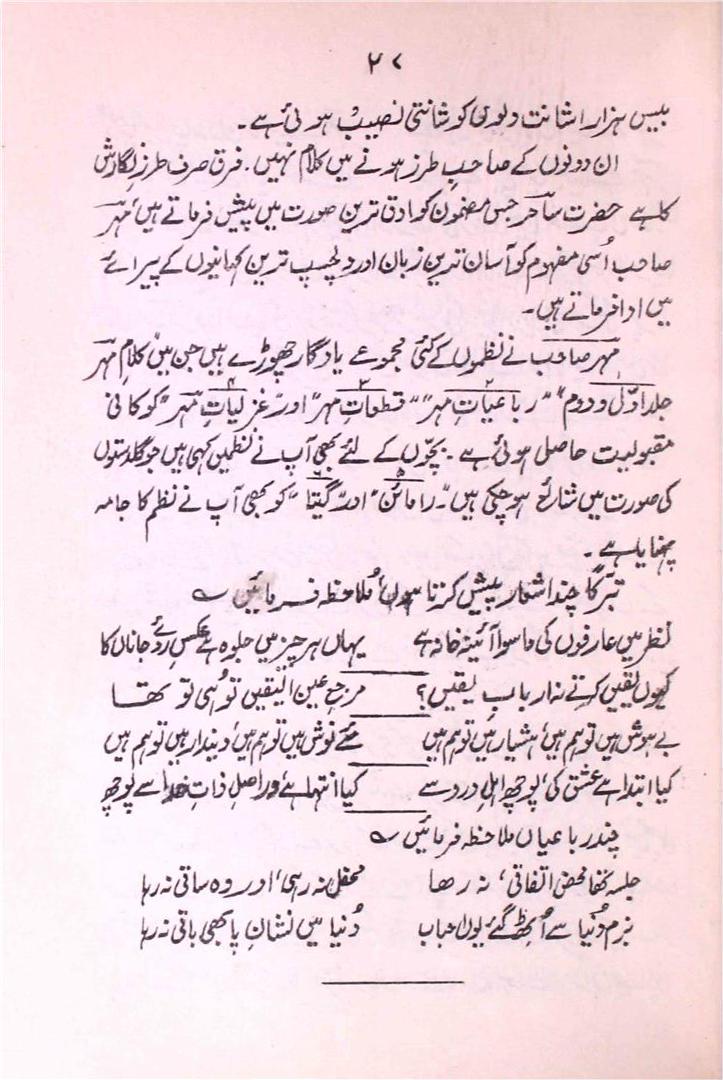 ۲۷
بیس ہزار اشانت دیوی کو شانتی نصیب ہوئی ہے۔
ان دونوں کے صاحبِ طرز ہونے میں کلام نہیں۔ فرق صرف طرزِ نگارش
کا ہے حضرت ساحر جس مضمون کو ادق ترین صورت میں پیش فرماتے ہیں، مہر
صاحب اُسی مفہوم کو آسان ترین زبان اور دلچسپ ترین کہانیوں کے پیرائے
میں ادا فرماتے ہیں۔
مہر صاحب نے نظموں کے کئی مجموعے یادگار چھوڑے ہیں جن میں "کلامِ مہر
جلد اوّل و دوم" "رباعیاتِ مہر" "قطعاتِ مہر" اور "غزلیاتِ مہر" کو کافی
مقبولیت حاصل ہوئی ہے۔ بچّوں کے لئے بھی آپ نے نظمیں کہی ہیں جو گلدستوں
کی صورت میں شائع ہو چکی ہیں۔ "رامائن" اور "گیتا" کو بھی آپ نے نظم کا جامہ
پہنایا ہے۔
تبرکاً چند اشعار پیش کرتا ہوں، مُلاحظہ فرمائیں ؎
نظر میں عارفوں کی ماسوا آئینہ خانہ ہے یہاں ہر چیز میں جلوہ ہے عکسِ روئے جاناں کا
کیوں یقیں کرتے نہ اربابِ یقیں؟ مرجعِ عین الیقیں تو ہی تو تھا
بے ہوش ہیں تو ہم ہیں، ہشیار ہیں تو ہم ہیں مئے نوش ہیں تو ہم ہیں، دیندار ہیں تو ہم ہیں
کیا ابتدا ہے عشق کی، پوچھ اہلِ درد سے کیا انتہا ہے، واصلِ ذاتِ خدا سے پوچھ
چند رباعیاں ملاحظہ فرمائیں ؎
جلسہ تھا محض اتفاقی، نہ رہا محفل نہ رہی، اور وہ ساقی نہ رہا
بزمِ دُنیا سے اُٹھ گئے یوں احباب دُنیا میں نشانِ پا بھی باقی نہ رہا